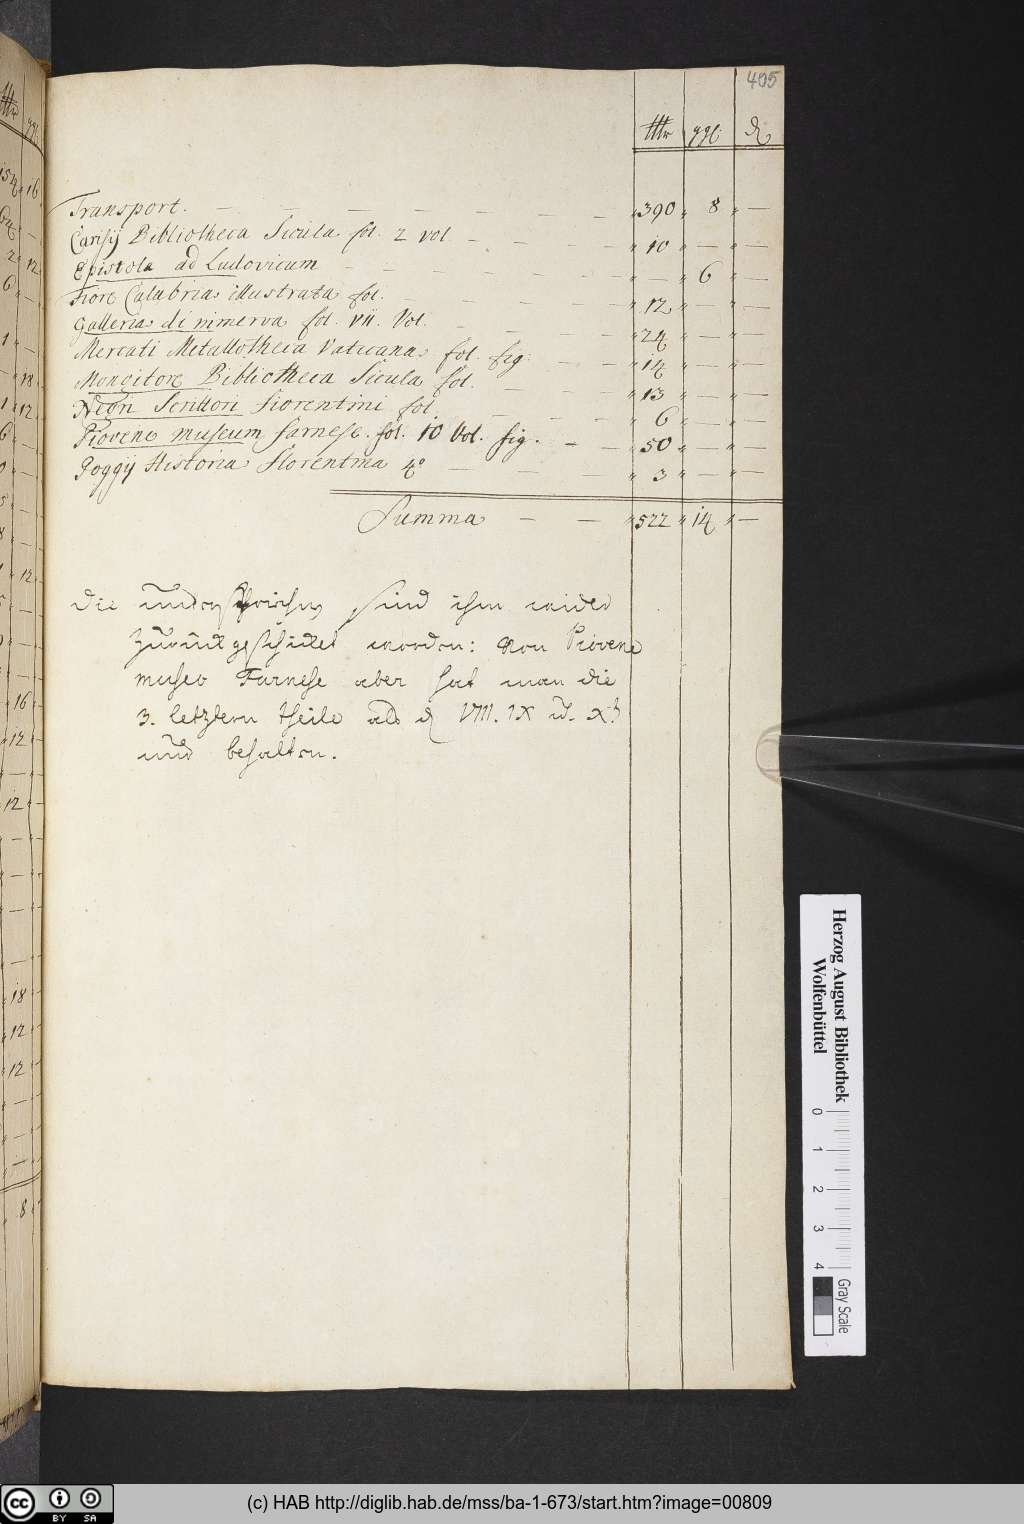 405
Thlr ggl. ₰
Transport. — — — — — — — " 390 " 8 " —
Carusij Bibliotheca Sicula fol. 2 vol. — — — — " 10 " — " —
Epistola ad Ludovicum — — — — — " — " 6 " —
Fiore Calabria illustrata fol. — — — — " 12 " — " —
Galleria di minerva fol. VII. Vol. — — — " 24 " — " —
Mercati Metallotheca Vaticana fol. fig. — — " 14 " — " —
Mongitore Bibliotheca Sicula fol. — — — " 13 " — " —
Negri Scrittori Fiorentini fol. — — — — " 6 " — " —
Piovene museum farnese. fol. 10 Vol. fig. — — " 50 " — " —
Poggij Historia Florentina 4° — — — — " 3 " — " —
Summa — — " 522 " 14 " —
die unterstrichnen sind ihm wider
zurückgeschicket worden: von Piovene
museo Farnese aber hat man die
3. letztern theile als VIII. IX u. X
behalten.
154 16
64 —
2 12
6 —
1 —
12
1 12
6 —
12
16
12
—
12
18
12
12
8
Herzog August Bibliothek
Wolfenbüttel
0 1 2 3 4
Gray Scale
cc BY SA
(c) HAB http://diglib.hab.de/mss/ba-1-673/start.htm?image=00809